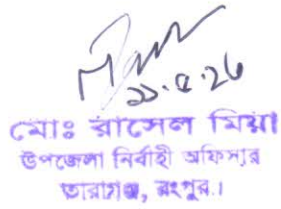 ২১.৫.২৬
মোঃ রাসেল মিয়া
উপজেলা নির্বাহী অফিসার
তারাগঞ্জ, রংপুর।